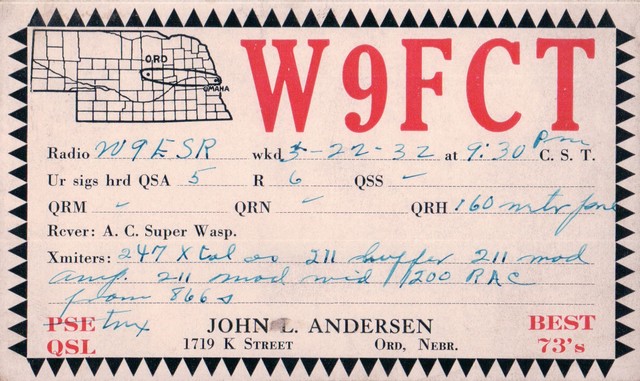 ORD
OMAHA
W9FCT
Radio W9ESR wkd 3-22-32 at 9:30 Pm C. S. T.
Ur sigs hrd QSA 5 R 6 QSS -
QRM - QRN - QRH 160 mtr fone
Rcver: A. C. Super Wasp.
Xmiters: 247 Xtal os 211 buffer 211 mod
amp. 211 mod 1200 RAC
from 866s
PSE tnx JOHN L. ANDERSEN BEST
QSL 1719 K STREET ORD, NEBR. 73's